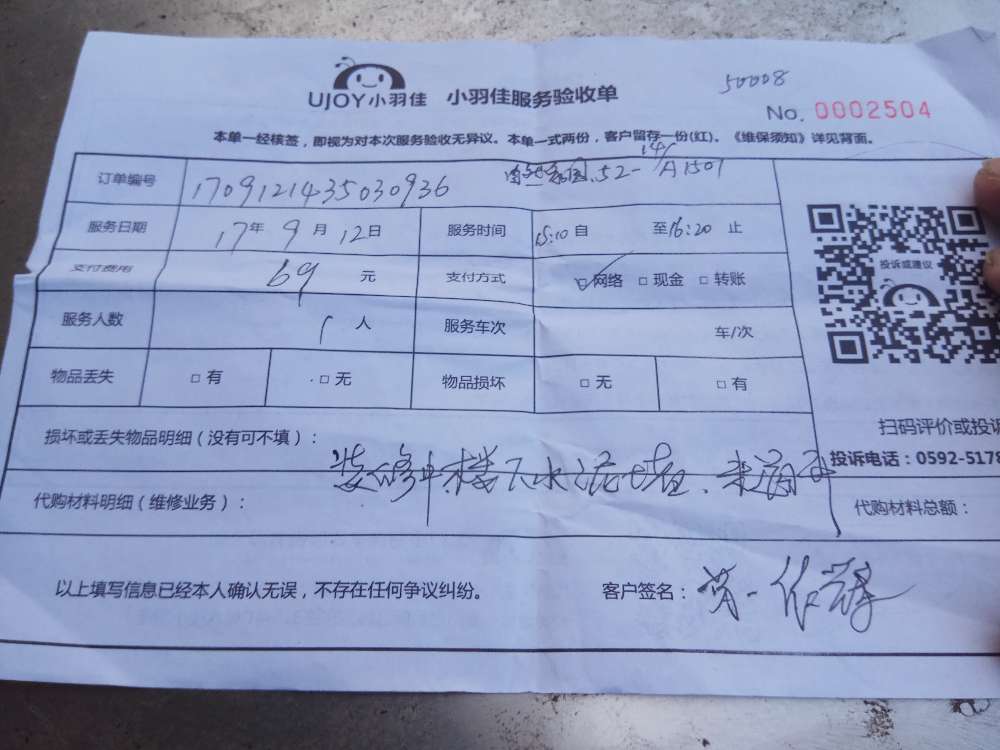 50008
UJOY小羽佳 小羽佳服务验收单
No. 0002504
本单一经核签，即视为对本次服务验收无异议。本单一式两份，客户留存一份(红)。《维保须知》详见背面。
订单编号 1709121435030936 52-14/A1501
服务日期 17年9月12日 服务时间 15:10自 至16:20止
支付费用 69元 支付方式 ☑网络 □现金 □转账
投诉或建议
服务人数 1人 服务车次 车/次
物品丢失 □有 □无 物品损坏 □无 □有
扫码评价或投诉
损坏或丢失物品明细（没有可不填）：
投诉电话：0592-5178
装修中楼下水泥堵、未
代购材料明细（维修业务）： 代购材料总额：
以上填写信息已经本人确认无误，不存在任何争议纠纷。 客户签名：